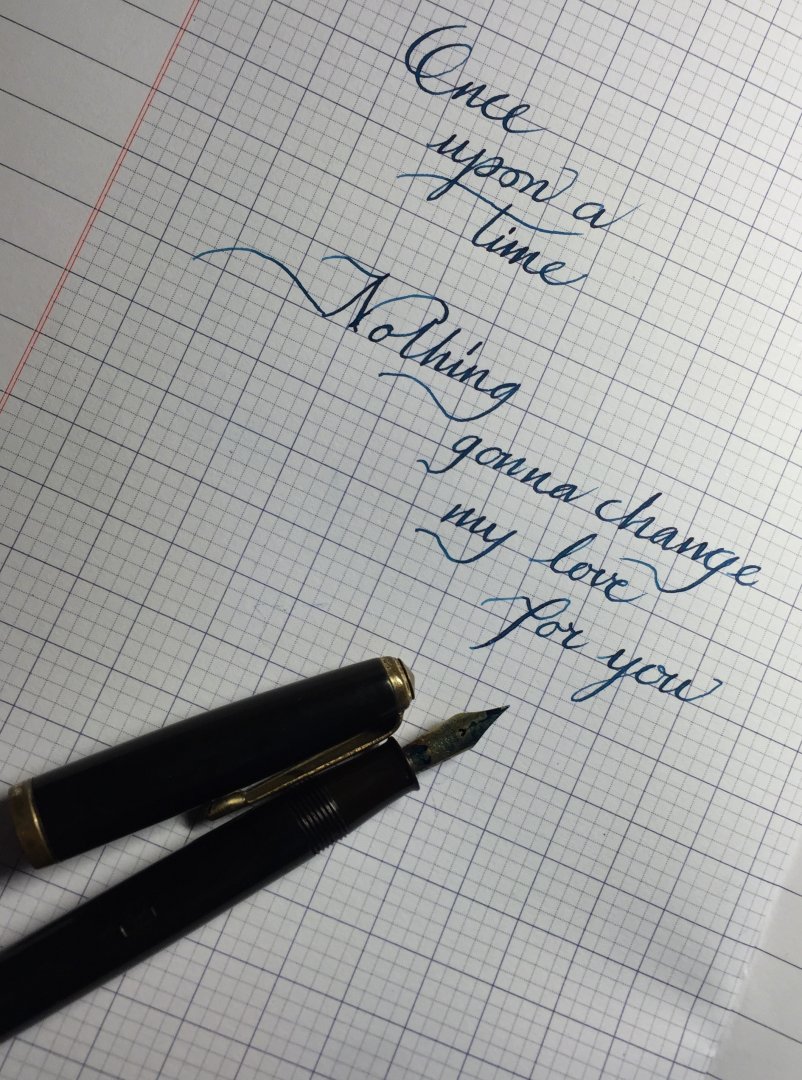 Once
upon a
time
Nothing
gonna change
my love
for you